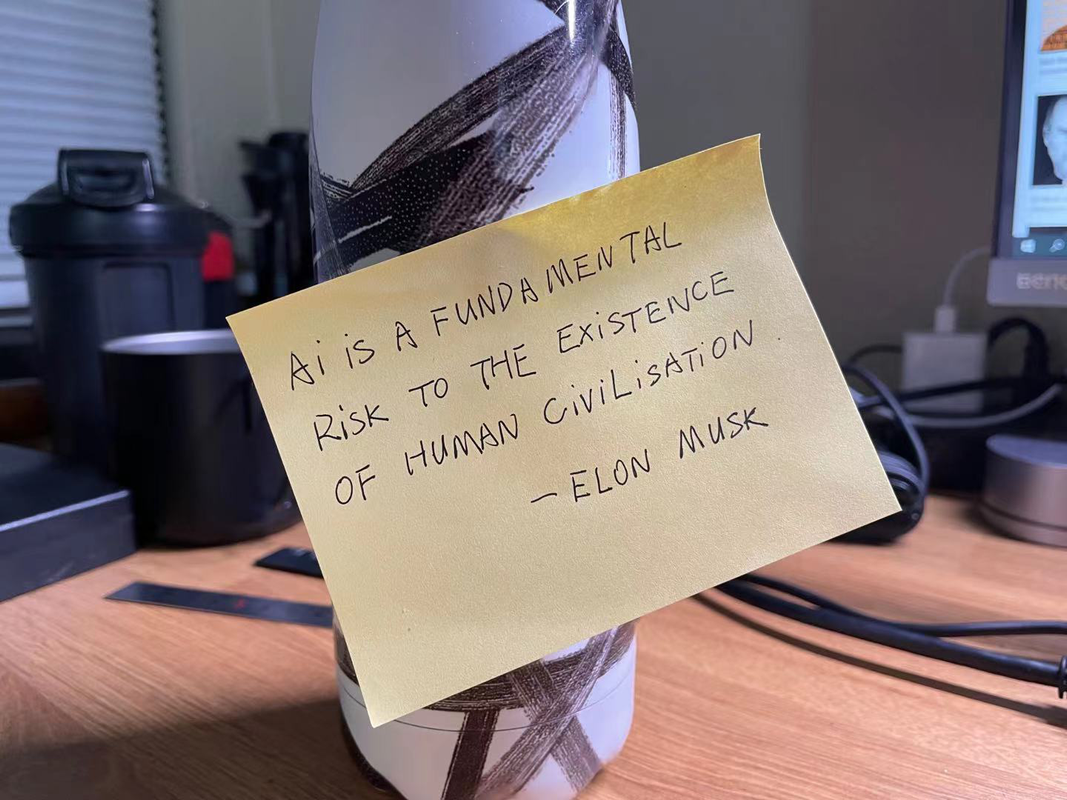 Ai iS A FUNDAMENTAL
RiSK TO THE EXiSTENCE
OF HUMAN CiViLiSATiON.
- ELON MUSK